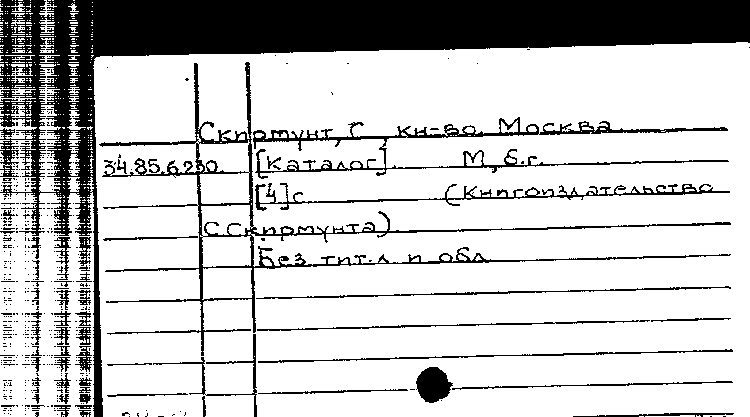 Скирмунт, С, кн-во. Москва
34.85.6.230. [Каталог]. М, б.г.
[4]с (Книгоиздательство
С.Скирмунта)
Без тит.л и обл